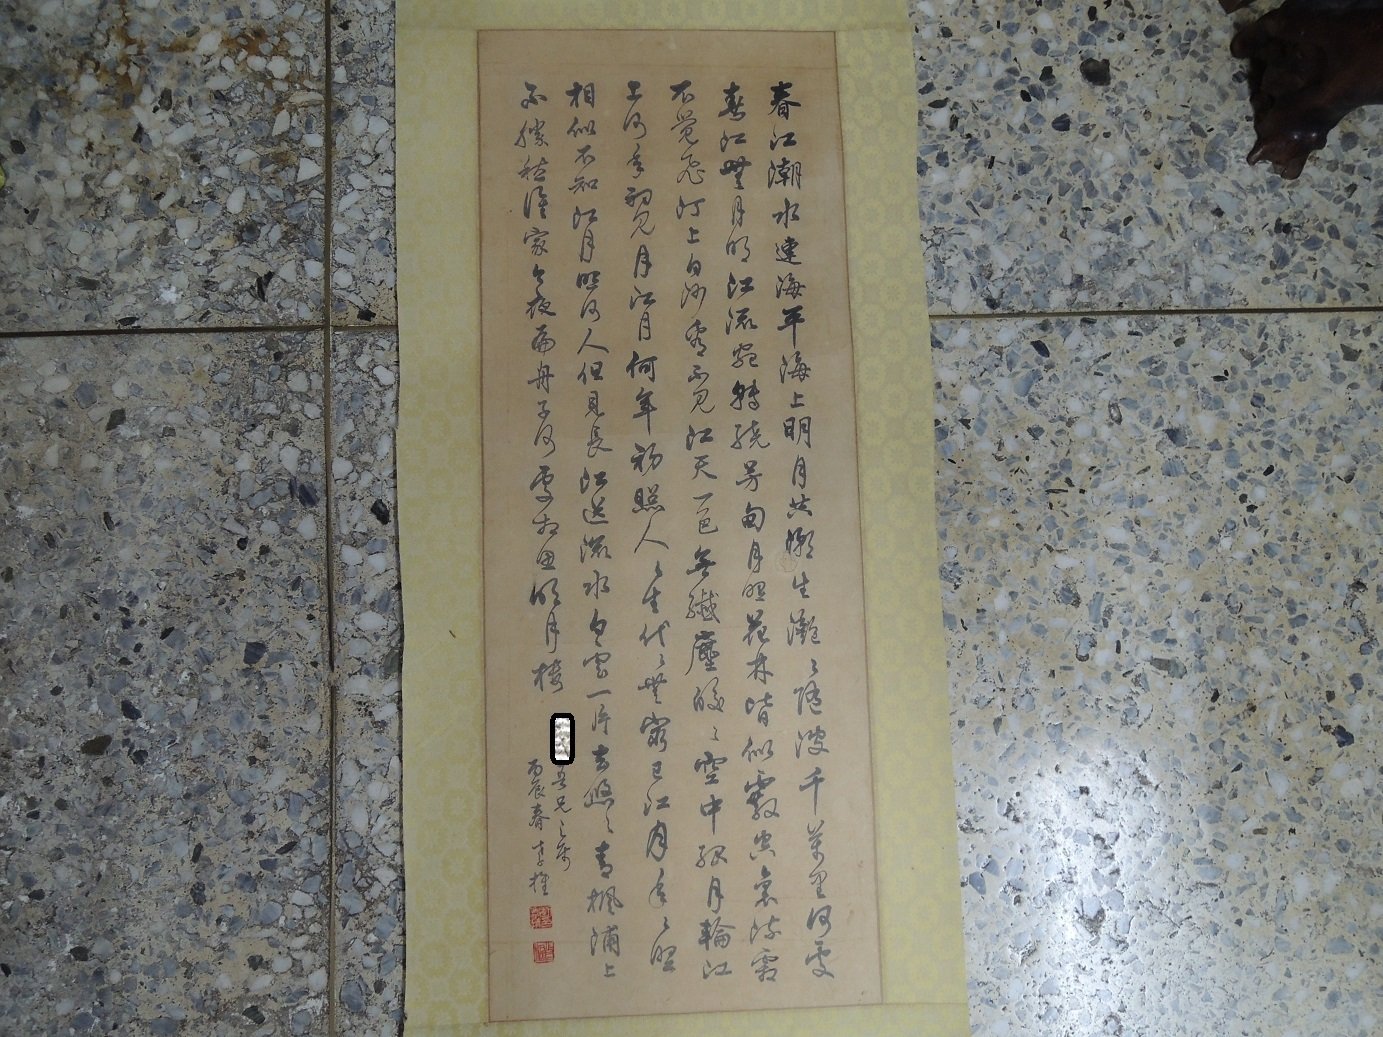 春江潮水連海平海上明月共潮生灩〻隨波千萬里何處
春江無月明江流宛轉繞芳甸月照花林皆似霰空裏流霜
不覺飛汀上白沙看不見江天一色無纖塵皎〻空中孤月輪江
上何年初見月江月何年初照人〻生代〻無窮已江月年〻照
相似不知江月照何人但見長江送流水白雲一片去悠〻青楓浦上
不勝愁誰家今夜扁舟子何處相思明月樓
吾兄之屬
丙辰春李